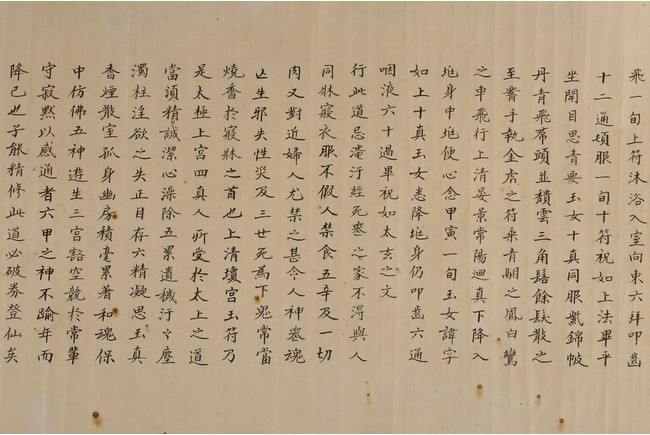 飛一旬上符沐浴入室向東六拜叩齒
十二通頓服一旬十符祝如上法畢平
坐閇目思青要玉女十真同服紫錦帔
丹青飛帬頭並穨雲三角髻餘髮散之
至署手執金虎之符乘青翮之鳳白鸞
之車飛行上清晏景常陽迴真下降入
地身中地便心念甲寅一旬玉女諱字
如上十真玉女悉降地身仍叩齒六通
咽液六十過畢祝如太玄之文
行此道忌淹汙經死喪之家不得與人
同牀寢衣服不假人禁食五辛及一切
肉又對近婦人尤禁之甚令人神喪魂
亡生邪失性災及三世死為下鬼常當
燒香於寢牀之首也上清瓊宮玉符乃
是太極上宮四真人所受於太上之道
當須精誠潔心澡除五累遺穢汙之塵
濁杜淫欲之失正目存六精凝思玉真
香煙散室孤身幽房積毫累著和魂保
中仿佛五神遊生三宮豁空競於常輩
守寂默以感通者六甲之神不踰年而
降己也子能精修此道必破券登仙矣